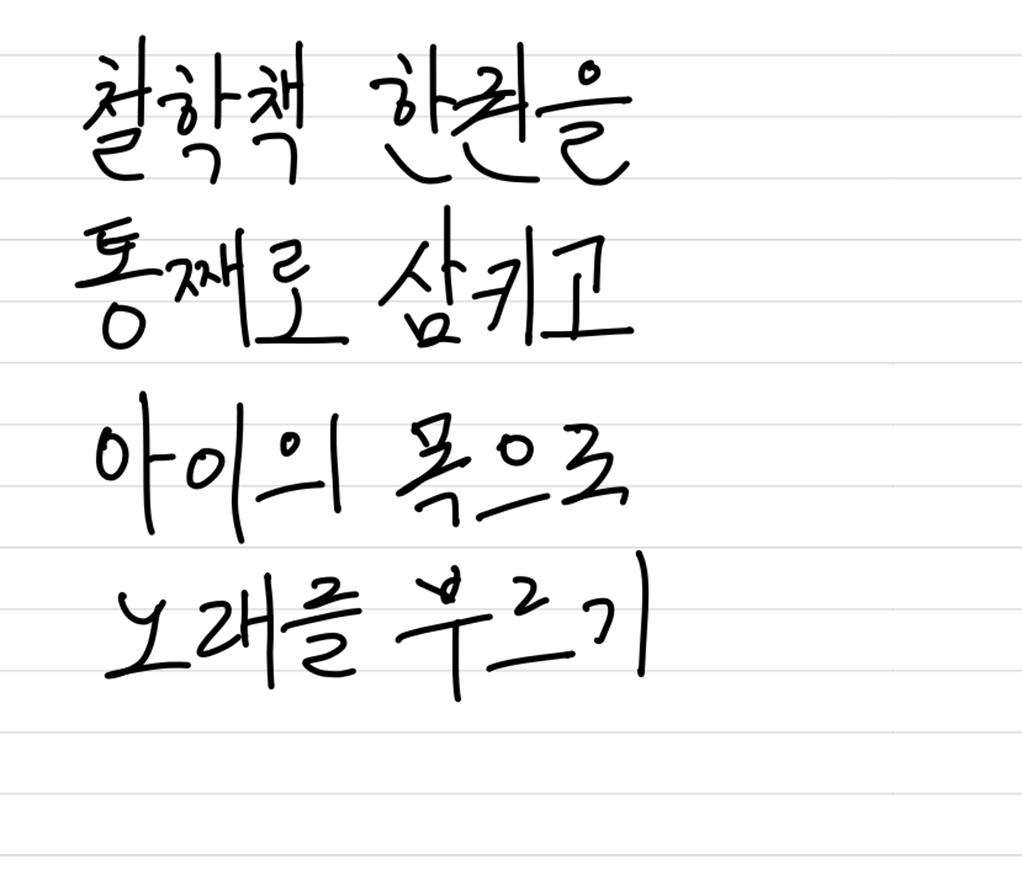 철학책 한권을
통째로 삼키고
아이의 목으로
노래를 부르기